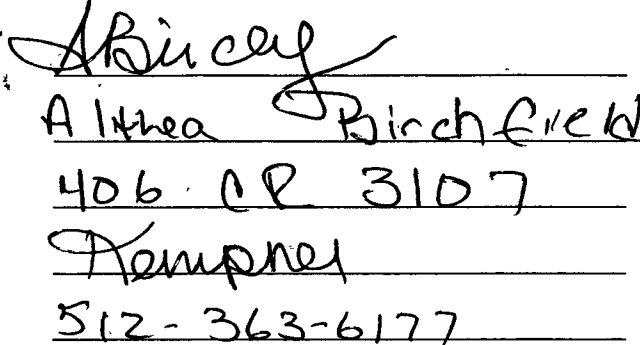 Althea Birchfield
406 CR 3107
Kempner
512-363-6177